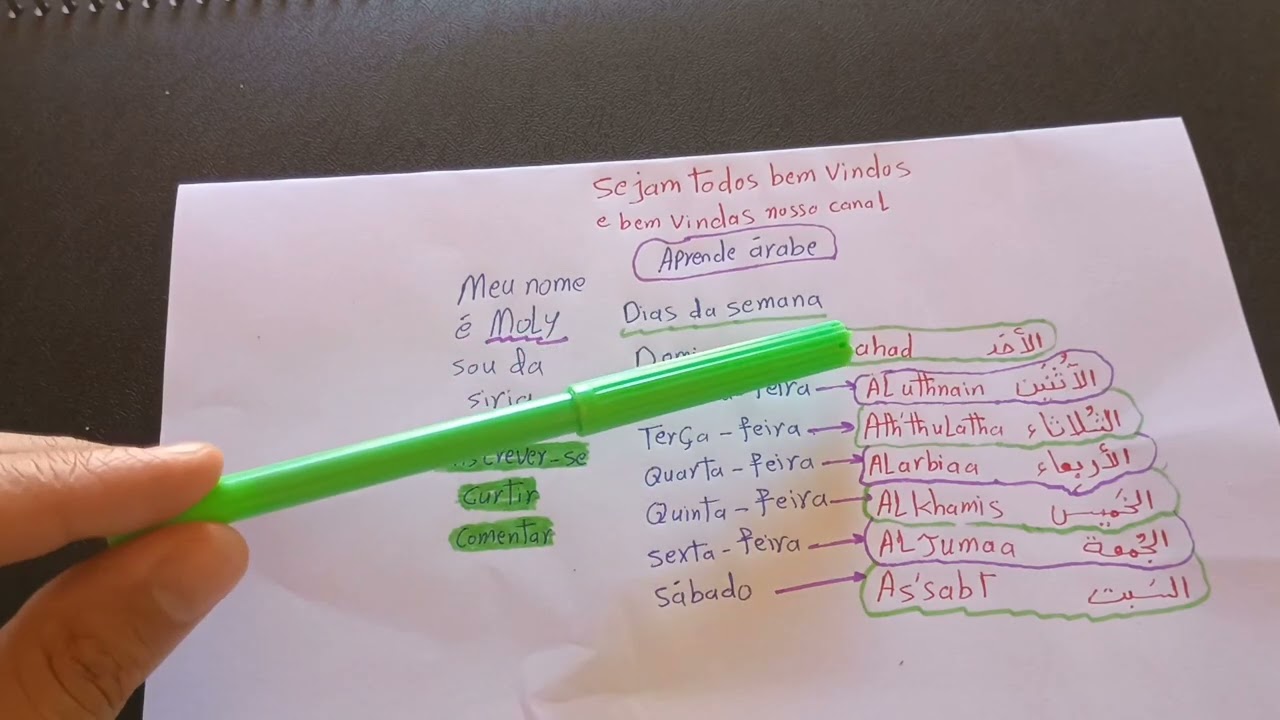 Sejam todos bem vindos
e bem vindas nosso canal
Aprende árabe
Meu nome
é Moly
sou da
siria
screver-se
Curtir
Comentar
Dias da semana
Domi ahad الأحَد
feira ALuthnain الآثْنَين
Terça-feira Ath'thulatha الثُلاثاء
Quarta-feira ALarbiaa الأربعاء
Quinta-feira ALkhamis الخَميس
sexta-feira AL Jumaa الجُمعة
sábado As'sabt السَبت